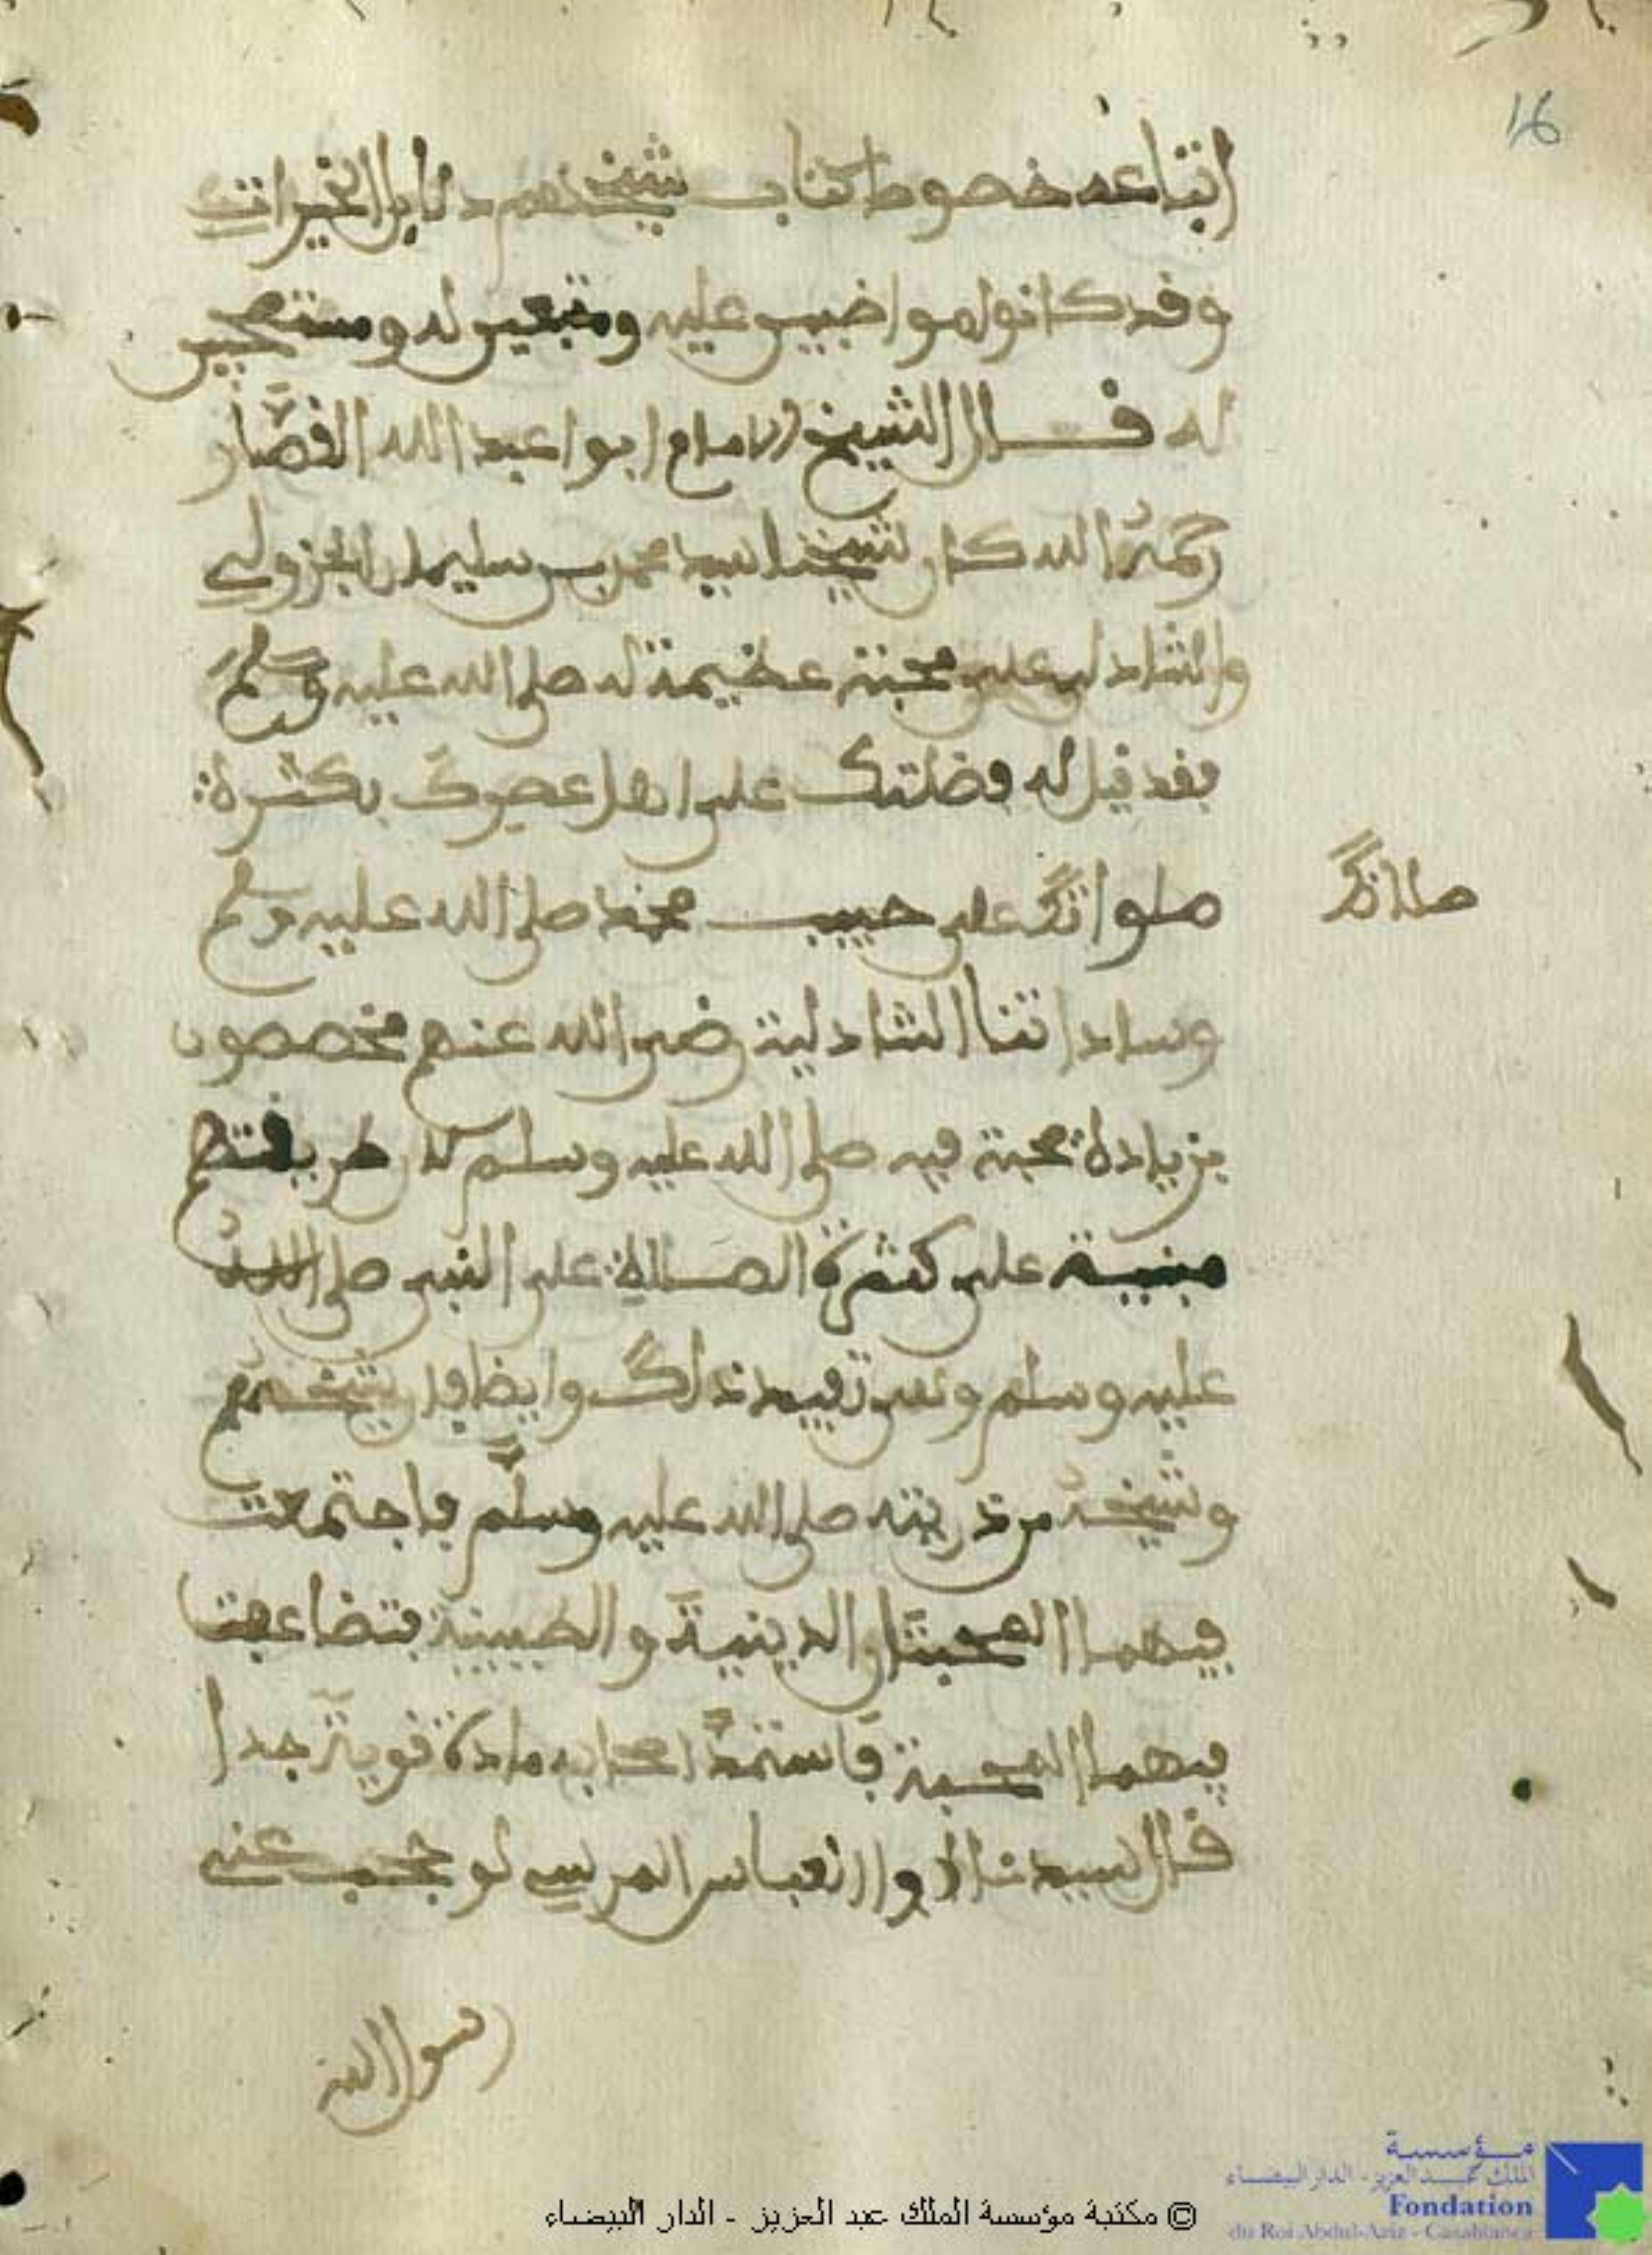 16
اتباعه خصوصا كتاب شيخهم دلايل الخيرات
وقد كانوا مواضبين عليه ومتبعين له
له قال الشيخ الامام ابوا عبد الله القصار
رحمه الله كان شيخنا سيد محمد بن سليمان الجزولي
والشاذلي على محبة عظيمة له صلى الله عليه وسلم
فقد قيل له فضلتك على اهل عصرك بكثرة
صلواتك على حبيب محمد صلى الله عليه وسلم
صلاتك
وساداتنا الشاذلية رضي الله عنهم مخصصون
بزيادة محبة فيه صلى الله عليه وسلم لان طريقتهم
مبنية على كثرة الصلاة على النبي صلى الله
عليه وسلم وأيضا فإن شيخهم
وشيخه من ذريته صلى الله عليه وسلم فاجتمعت
فيهما المحبتان الدينية والطبيبية فتضاعفت
فيهما المحبة فاستمد اصحابه مادة قوية جدا
قال سيدنا ابوا العباس المرسي لو حجب عني
رسول الله
© مكتبة مؤسسة الملك عبد العزيز - الدار البيضاء
مؤسسة
الملك عبد العزيز - الدار البيضاء
Fondation
du Roi Abdul-Aziz - Casablanca